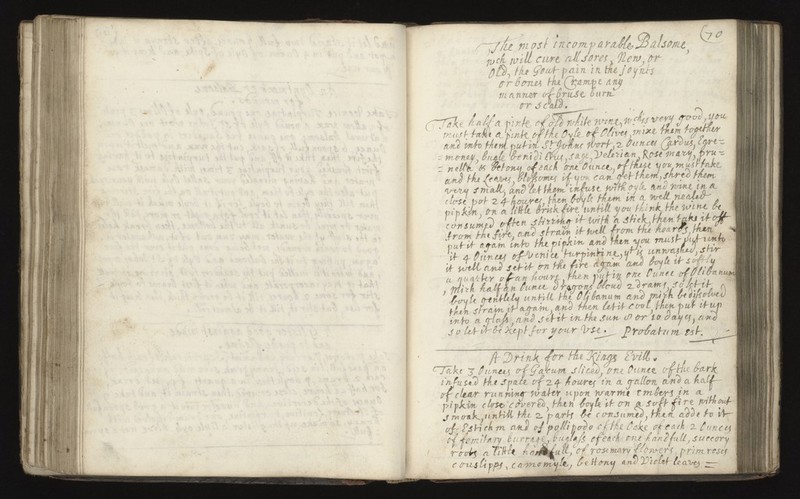 70
The most incomparable Balsome,
wch will cure all sores, New, or
Old, the Gout pain in the Joynts
or bones the Crampe any
manner of bruse burn
or scald.
Take half a pinte of old white wine, wch is very good, you
must take a pinte of the Oyle of Olives, mixe them together
and into them put in St Johns Wort, 2 Ounces Carduus, Egre=
=money, bugle benidictus, sage, Valerian, Rosemary, pru=
=nella & Betony of each one Ounce, of these you must take
and the Leaves, blossomes if you can get them, shred them
very small, and let them infuse with oyle and wine in a
close pot 24 houres, then boyle them in a well nealed
pipkin, on a little brisk fire untill you think the wine be
consumed often stirring it with a stick, then take it off
from the fire, and strain it well from the hearbs, then
put it again into the pipkin and then you must put into
it 4 Ounces of Venice turpintine, yt is unwashed, stir
it well and set it on the fire again and boyle it softly
a quarter of an houre, then put in one Ounce of Olibanum
, Mirh half an Ounce, Dragons bloud 2 drams, so let it
boyle gentlely untill the Olibanum and mirh be dissolved
then strain it again, and then let it cool, then put it up
into a glass, and set it in the sun 8 or 10 dayes, and
so let it be kept for your Vse. Probatum est.
A Drink for the Kings Evill.
Take 3 Ounces of Gakum sliced, one Ounce of the bark
infused the space of 24 houres in a gallon and a half
of clear running water upon warme embers in a
pipkin close covered, then boyle it on a soft fire without
smoak, untill the 2 parts be consumed, then adde to it
of Estichm and of pollipodo of the Oake of each 2 Ounces
of fomitary burrage, buglass of each one handfull, succory
roots a little handfull, of rosemary flowers, primroses
couslipps, camomyle, bettony and Violet leaves =